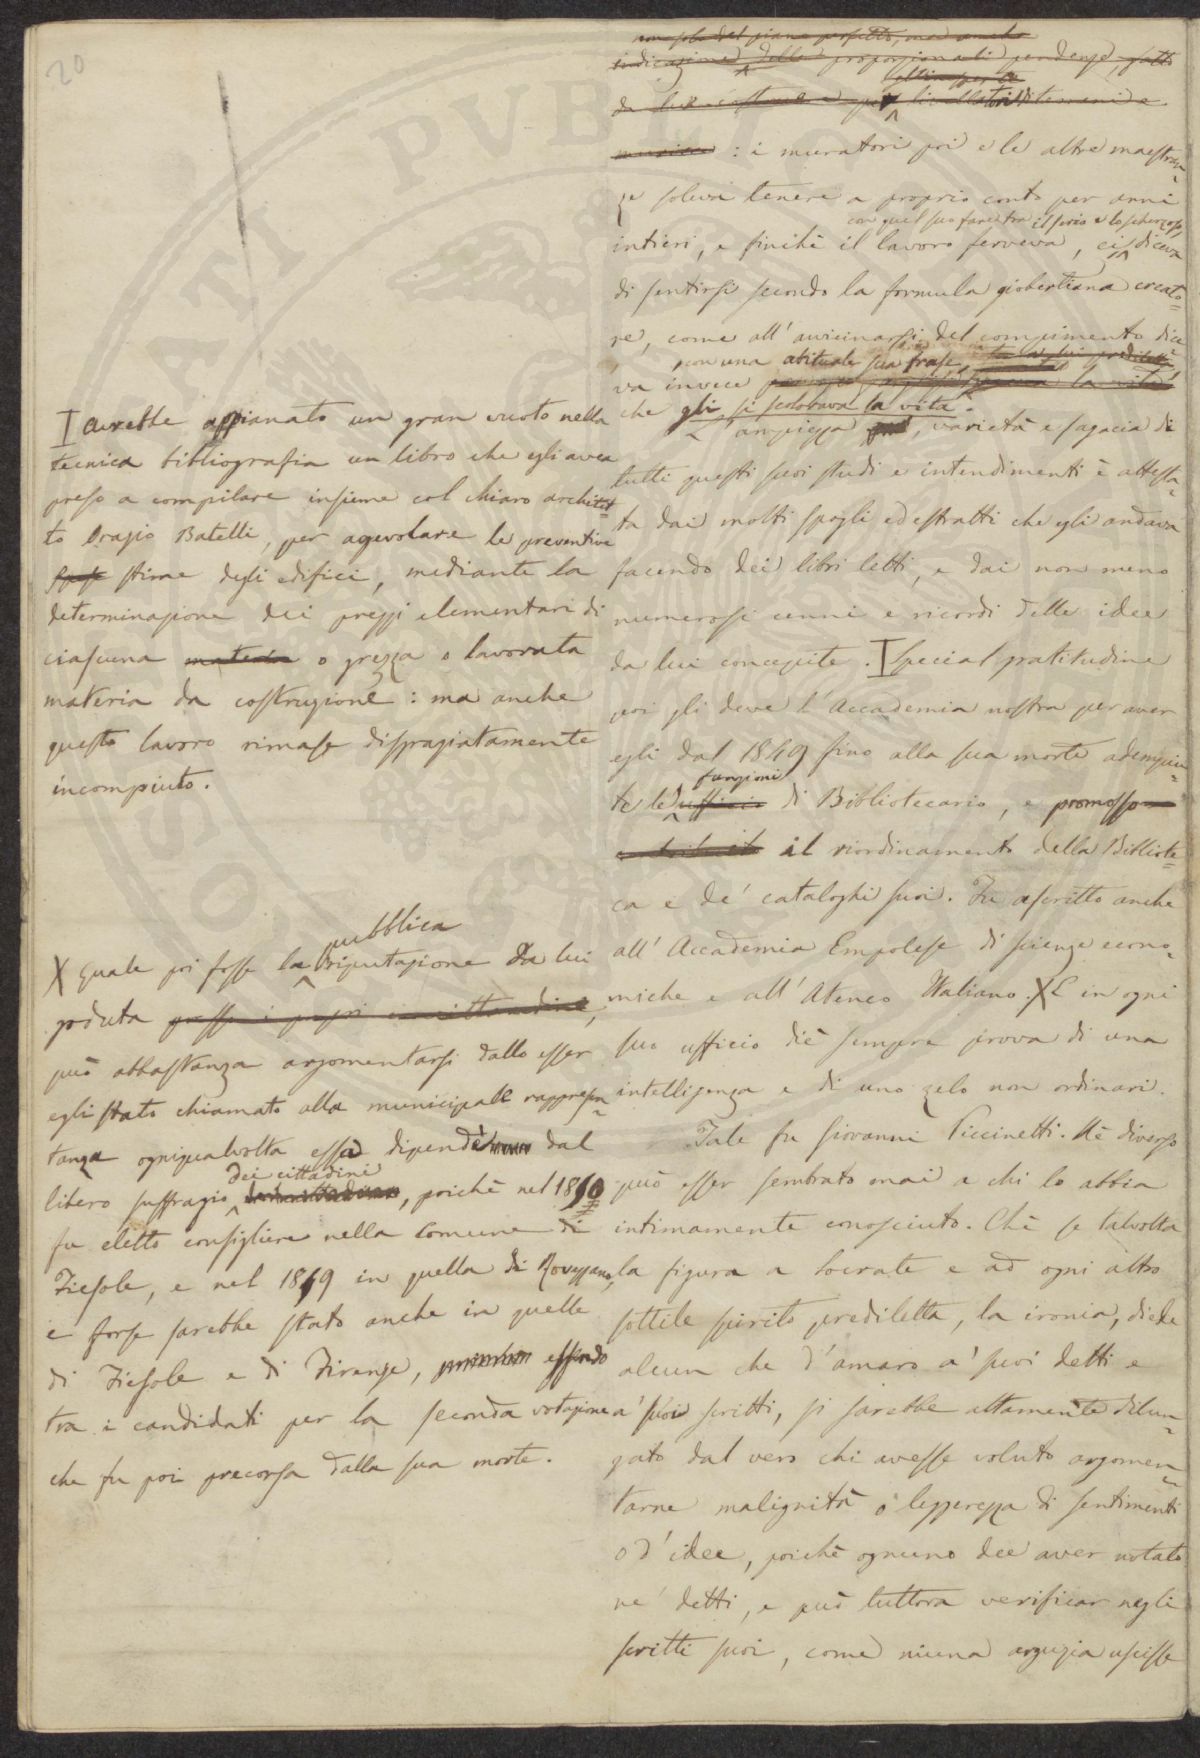 20
I avrebbe appianato un gran vuoto nella
tecnica bibliografia un libro che egli avea
preso a compilare insieme col chiaro architet=
to Orazio Batelli, per agevolare le preventive
spese stime degli edifici, mediante la
determinazione dei prezzi elementari di
ciascuna materia o grezza o lavorata
materia da costruzione: ma anche
questo lavoro rimase disgraziatamente
incompiuto.
pubblica
X Quale poi fosse la riputazione da lui
goduta presso i propri concittadini,
può abbastanza argomentarsi dallo esser
egli stato chiamato alla municipale rappresen=
tanza ogniqualvolta essa dipendè dal
dei cittadini
libero suffragio, poichè nel 1850
fu eletto consigliere nella Comune di
Fiesole, e nel 1859 in quella di Rovezzano,
e forse sarebbe stato anche in quelle
di Fiesole e di Firenze, essendo
tra i candidati per la seconda votazione
che fu poi precorsa dalla sua morte.
non solo del piano perfetto, ma anche
indicazione delle proporzionali pendenze, fatto
da livellatori di terreni e
: i muratori poi e le altre maestran=
ze soleva tenere a proprio conto per anni
con quel suo fare tra il serio e lo scherzoso,
intieri, e finchè il lavoro ferveva, ei diceva
di sentirsi secondo la formula giobertiana creato=
re, come all'avvicinarsi del compimento dice=
con una abituale sua frase
va invece
che gli si scolorava la vita.
L'ampiezza, varietà e sagacia di
tutti questi suoi studi e intendimenti è attesta=
ta dai molti spogli ed estratti che egli andava
facendo dei libri letti, e dai non meno
numerosi cenni e ricordi delle idee
da lui concepite. I Special gratitudine
poi gli deve l'Accademia nostra per aver
egli dal 1849 fino alla sua morte adempiu=
funzioni
te le ufficio di Bibliotecario, e promosso
il riordinamento della Bibliote=
ca e de' cataloghi suoi. Fu ascritto anche
all'Accademia Empolese di scienze econo=
miche e all'Ateneo Italiano. X E in ogni
suo ufficio diè sempre prova di una
intelligenza e di uno zelo non ordinari.
Tale fu Giovanni Piccinetti. Nè diverso
può esser sembrato mai a chi lo abbia
intimamente conosciuto. Chè se talvolta
la figura a Socrate e ad ogni altro
sottile spirito prediletta, la ironia, diede
alcun che d'amaro a' suoi detti e
a' suoi scritti, si sarebbe altamente dilun=
gato dal vero chi avesse voluto argomen=
tarne malignità o leggerezza di sentimenti
o d'idee, poichè ognuno dee aver notato
ne' detti, e può tuttora verificar negli
scritti suoi, come niuna arguzia uscisse